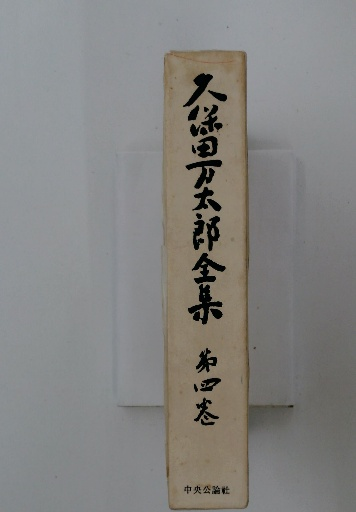 久保田万太郎全集 第四巻
中央公論社